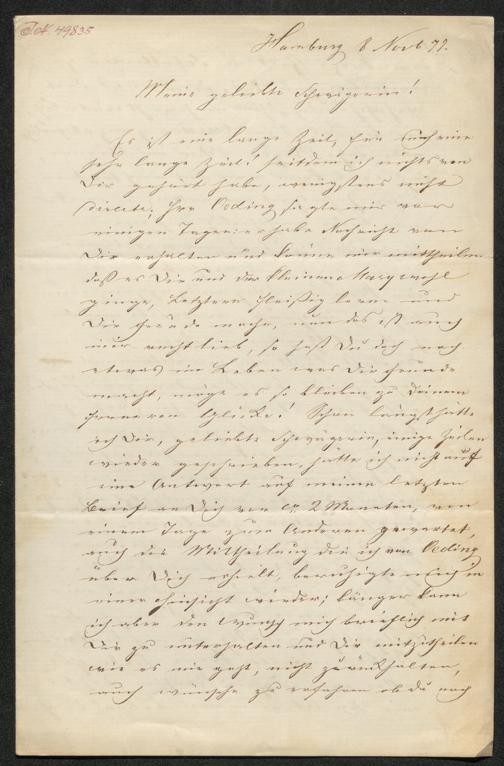 49835
Hamburg 8 Novb 79.
Meine geliebte Schwägerin!
Es ist eine lange Zeit, für mich eine
sehr lange Zeit! seitdem ich nichts von
Dir gehört habe, wenigstens nicht
directe; Herr Oeding sagte mir vor
einigen Tagen: er habe Nachricht von
Dir erhalten und könne mir mittheilen
daß es Dir und der kleinen Mary wohl
ginge, Letztere fleißig lerne und
Dir Freude mache, nun das ist auch
mir recht lieb, so hast Du doch noch
etwas im Leben was Dir Freude
macht, möge es so bleiben zu Deinem
ferneren Glücke! Schon längst hätte
ich Dir, geliebte Schwägerin, einige Zeilen
wieder geschrieben, hätte ich nicht auf
eine Antwort auf meine letzten
Brief an Dich vor ca 2 Monaten, von
einem Tage zum Anderen gewartet,
auch die Mittheilung die ich von Oeding
über Dich erhielt, beruhigte mich in
einer Hinsicht wieder; länger kann
ich aber den Wunsch mich brieflich mit
Dir zu unterhalten und Dir mitzutheilen
wie es mir geht, nicht zurückhalten,
auch wünsche zu erfahren ob du noch